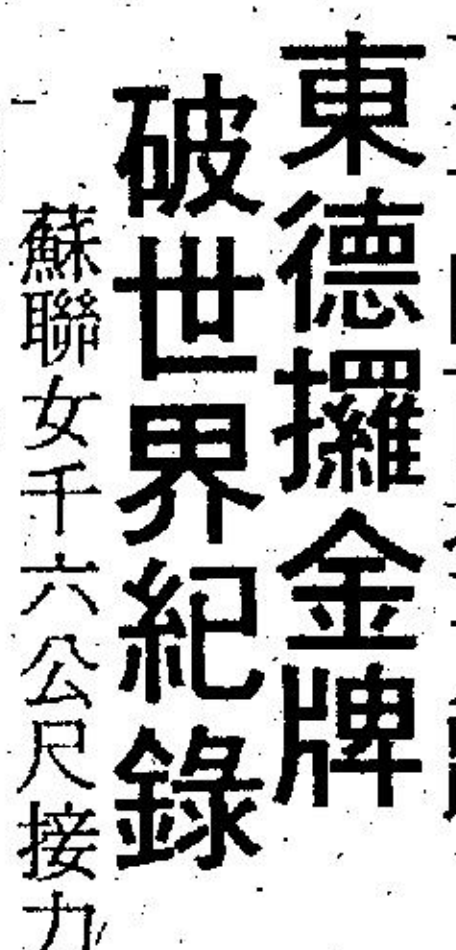 東德攞金牌
破世界紀錄
蘇聯女千六公尺接力